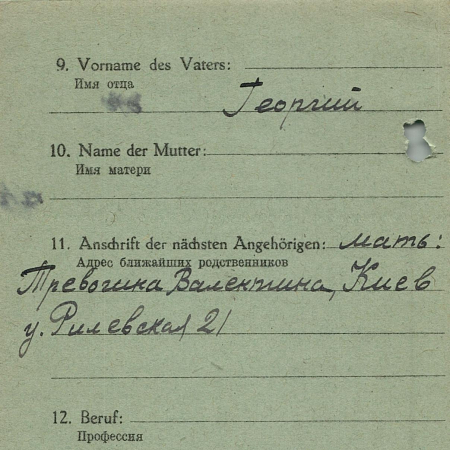 9. Vorname des Vaters:
Имя отца
Георгий
10. Name der Mutter:
Имя матери
11. Anschrift der nächsten Angehörigen: мать:
Адрес ближайших родственников
Тревогина Валентина, Киев
у. Рилевская 21
12. Beruf:
Профессия